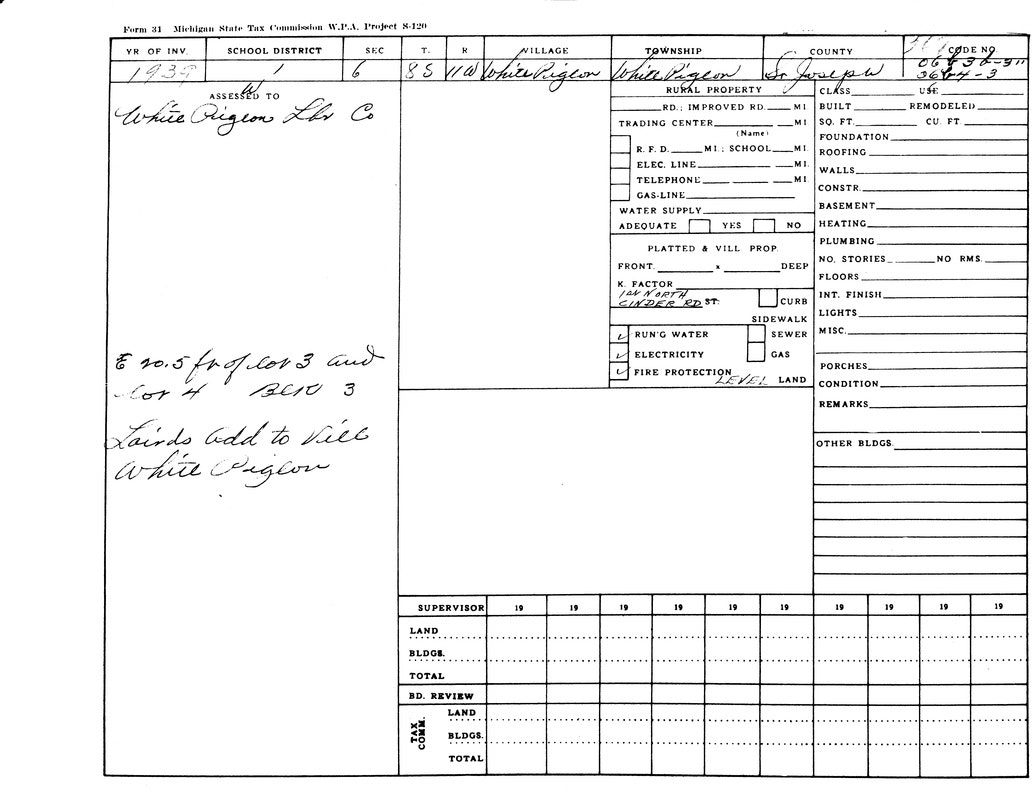 Form 31 Michigan State Tax Commission W.P.A. Project S-120
YR OF INV. SCHOOL DISTRICT SEC T. R VILLAGE TOWNSHIP COUNTY CODE NO.
1939 1 6 8S 11W White Pigeon White Pigeon St Joseph
ASSESSED TO
White Pigeon Lbr Co
E 20.5 ft of Lot 3 and
Lot 4 Blk 3
Lairds Add to Vill
White Pigeon
RURAL PROPERTY
RD.; IMPROVED RD. MI.
TRADING CENTER MI.
(Name)
R. F. D. MI.; SCHOOL MI.
ELEC. LINE MI.
TELEPHONE MI.
GAS-LINE
WATER SUPPLY
ADEQUATE YES NO
PLATTED & VILL PROP.
FRONT. x DEEP
K. FACTOR
NORTH
CINDER RD ST. CURB
SIDEWALK
RUN'G WATER SEWER
ELECTRICITY GAS
FIRE PROTECTION
LEVEL LAND
CLASS USE
BUILT REMODELED
SQ. FT. CU. FT.
FOUNDATION
ROOFING
WALLS
CONSTR.
BASEMENT
HEATING
PLUMBING
NO. STORIES NO RMS.
FLOORS
INT. FINISH
LIGHTS
MISC.
PORCHES
CONDITION
REMARKS
OTHER BLDGS.
SUPERVISOR 19 19 19 19 19 19 19 19 19 19
LAND
BLDGS.
TOTAL
BD. REVIEW
TAX COMM.
LAND
BLDGS.
TOTAL